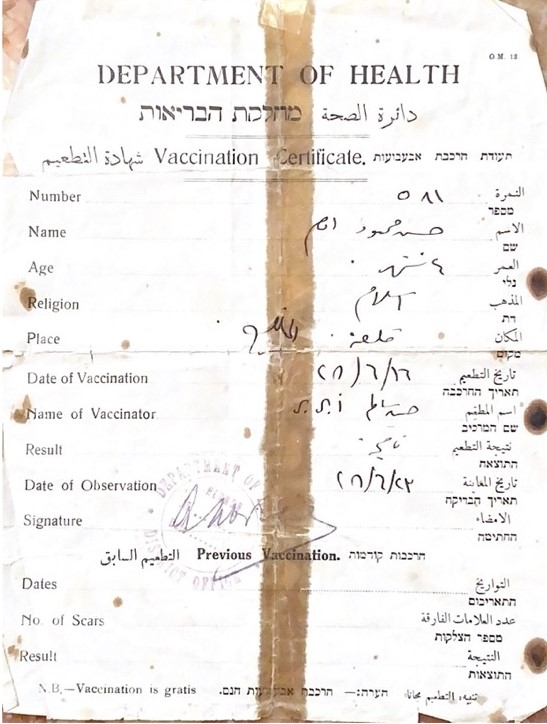 O.M. 13
DEPARTMENT OF HEALTH
דائرة الصحة מחלקת הבריאות
شهادة التطعيم Vaccination Certificate. תעודת הרכבת אבעבועות
Number ٥٨١ النمرة
מספר
Name حسن محمود الاسم
שם
Age ٤ العمر
גיל
Religion اسلام المذهب
דת
Place المكان
מקום
Date of Vaccination تاريخ التطعيم
תאריך ההרכבה
Name of Vaccinator اسم المطعم
שם המרכיב
Result نتيجة التطعيم
התוצאה
Date of Observation تاريخ المعاينة
תאריך הבדיקה
Signature الامضاء
החתימה
DEPARTMENT OF
DISTRICT OFFICE
التطعيم السابق Previous Vaccination. הרכבות קודמות
Dates التواريخ
התאריכים
No. of Scars عدد العلامات الفارقة
מספר הצלקות
Result النتيجة
התוצאות
N.B.—Vaccination is gratis הערה:— הרכבת אבעבועות חנם. تنبيه التطعيم مجانا